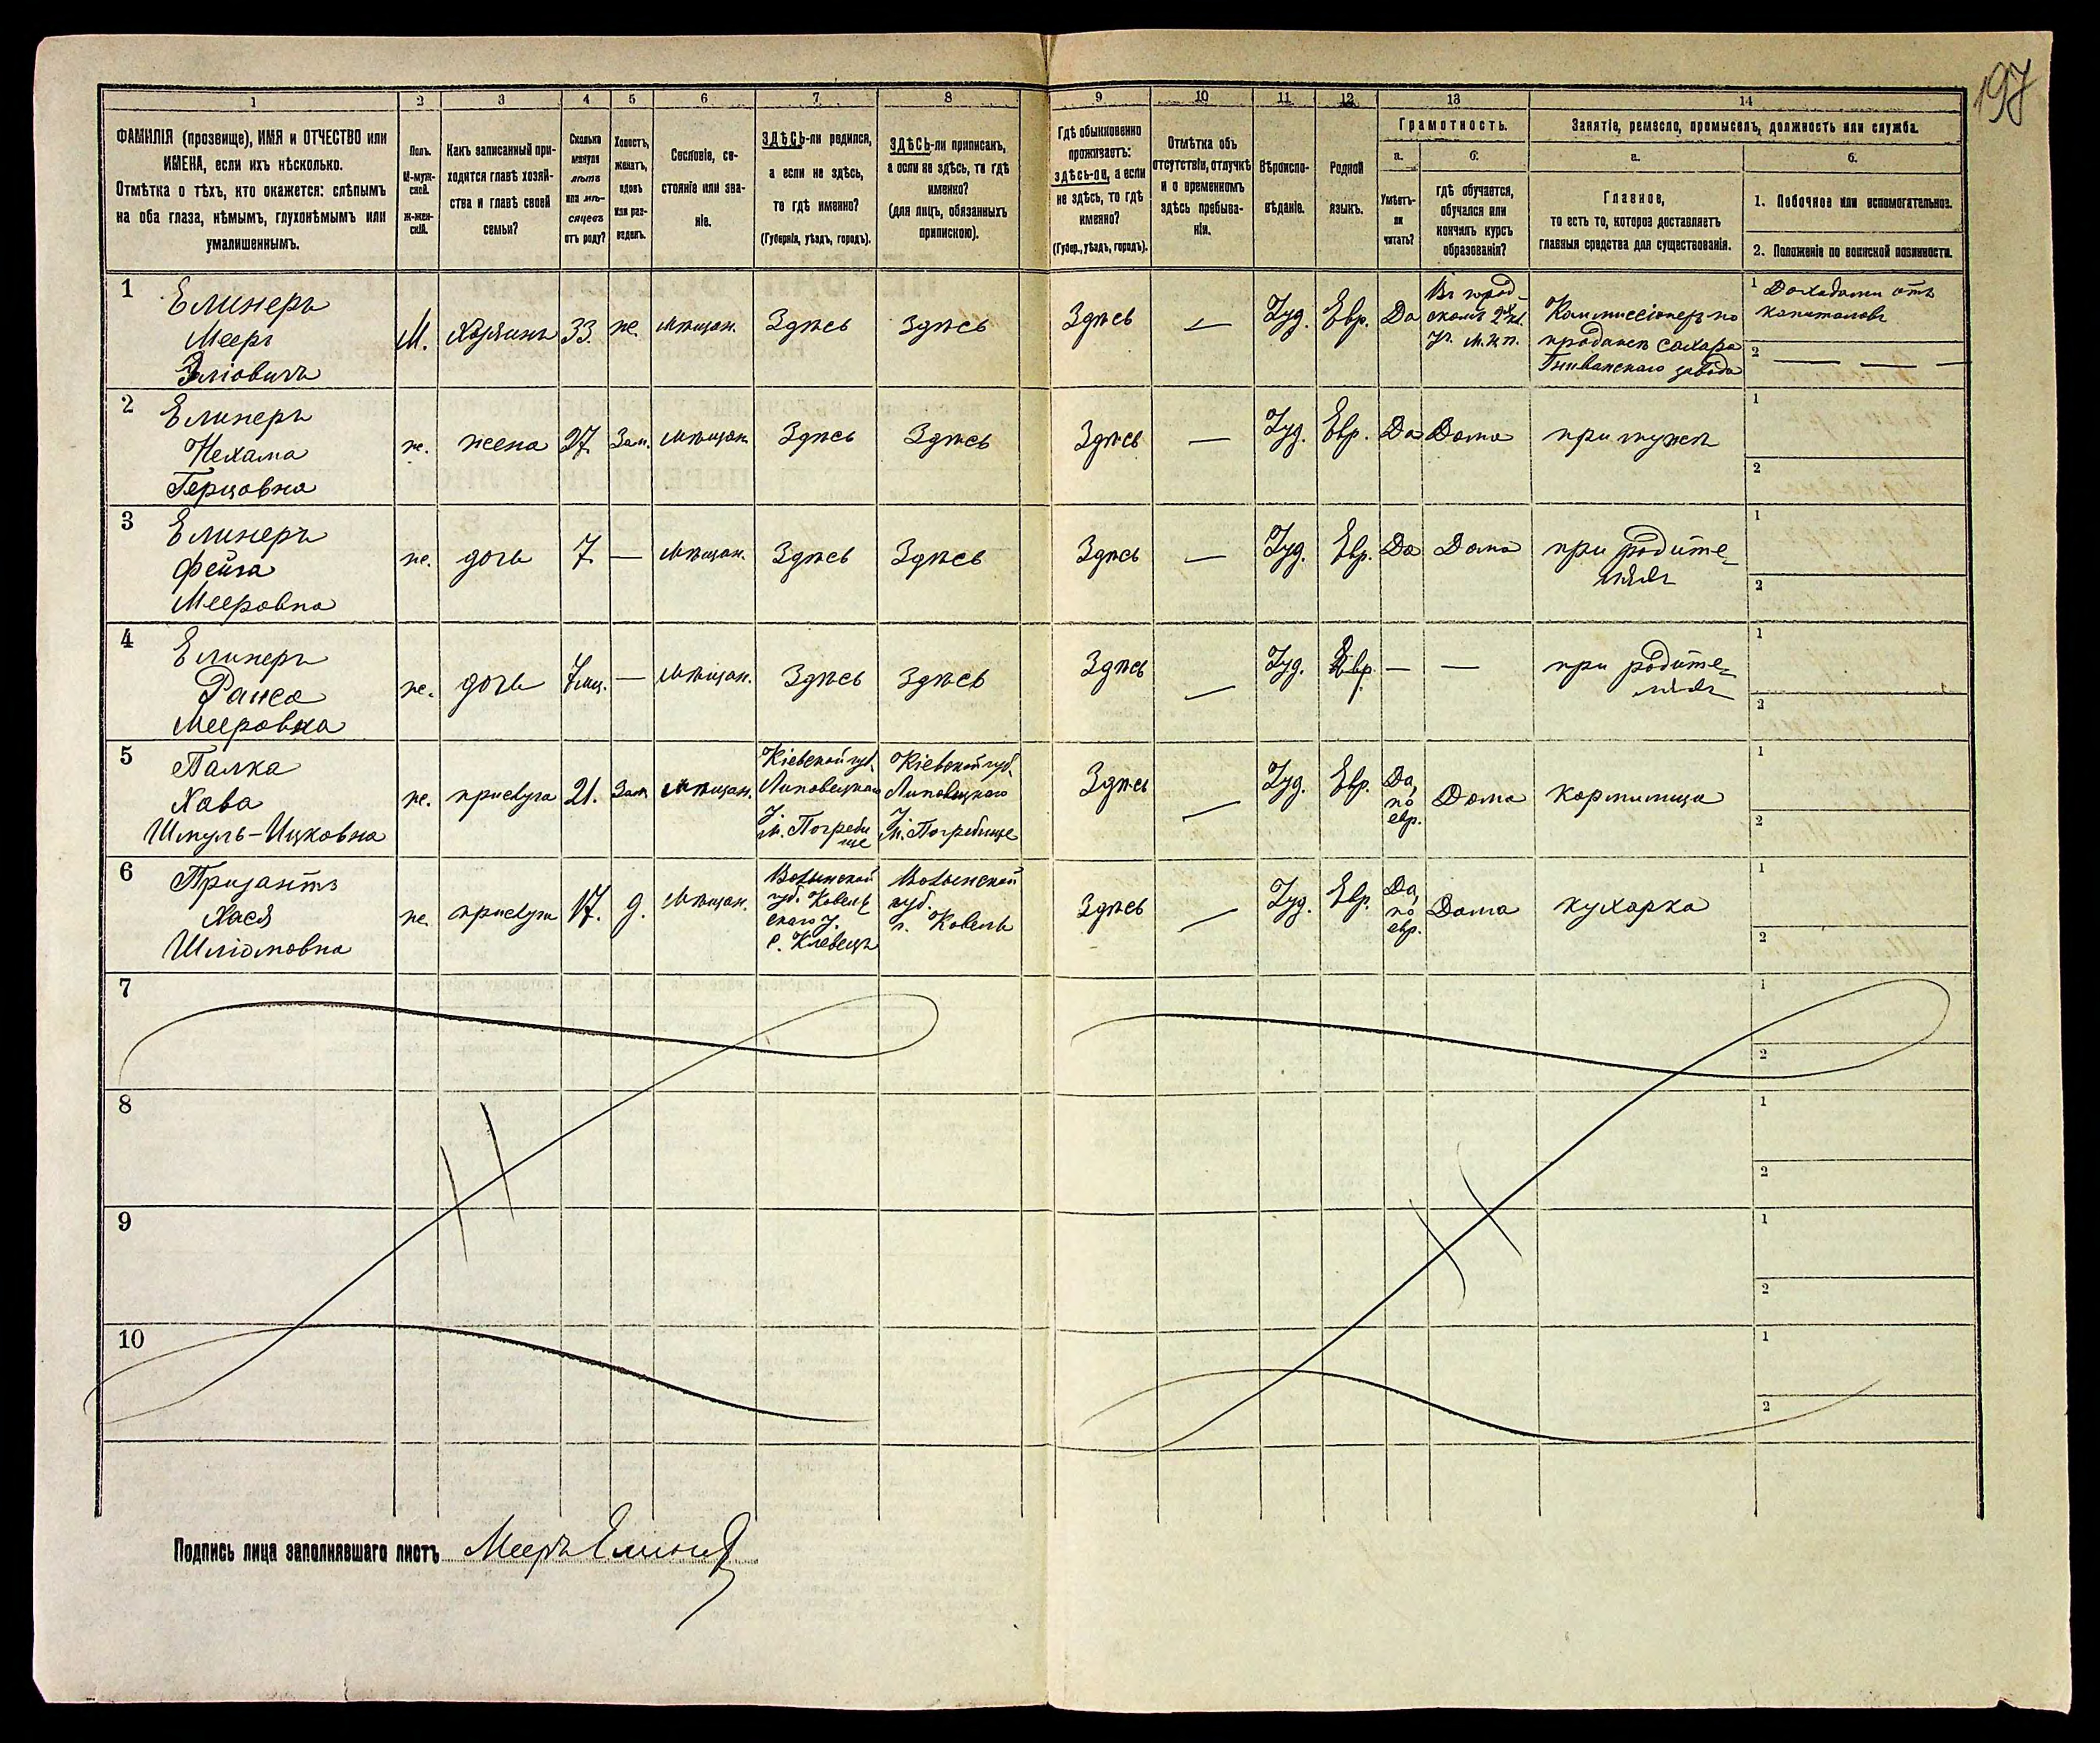 197
1 2 3 4 5 6 7 8 9 10 11 12 13 14
ФАМИЛІЯ (прозвище), ИМЯ и ОТЧЕСТВО или
ИМЕНА, если ихъ нѣсколько.
Отмѣтка о тѣхъ, кто окажется: слѣпымъ
на оба глаза, нѣмымъ, глухонѣмымъ или
умалишеннымъ.
Полъ.
М-муж-
ской.
ж-жен-
скій.
Какъ записанный при-
ходится главѣ хозяй-
ства и главѣ своей
семьи?
Сколько
минуло
лѣтъ
или мѣ-
сяцевъ
отъ роду?
Холостъ,
женатъ,
вдовъ
или раз-
веденъ.
Сословіе, со-
стояніе или зва-
ніе.
ЗДѢСЬ-ли родился,
а если не здѣсь,
то гдѣ именно?
(Губернія, уѣздъ, городъ).
ЗДѢСЬ-ли приписанъ,
а если не здѣсь, то гдѣ
именно?
(для лицъ, обязанныхъ
припискою).
Гдѣ обыкновенно
проживаетъ:
здѣсь-ли, а если
не здѣсь, то гдѣ
именно?
(Губер., уѣздъ, городъ).
Отмѣтка объ
отсутствіи, отлучкѣ
и о временномъ
здѣсь пребыва-
ніи.
Вѣроиспо-
вѣданіе.
Родной
языкъ.
Грамотность.
а.
Умѣетъ-
ли
читать?
б.
гдѣ обучается,
обучался или
кончилъ курсъ
образованія?
Занятіе, ремесло, промыселъ, должность или служба.
а.
Главное,
то есть то, которое доставляетъ
главныя средства для существованія.
б.
1. Побочное или вспомогательное.
2. Положеніе по воинской повинности.
1
Елинеръ
Мееръ
Эліовичъ
М.
Хозяинъ
33.
ж.
мѣщан.
Здѣсь
Здѣсь
Здѣсь
—
Іуд.
Евр.
Да
Въ город-
скомъ 2 кл.
уч. м. н. п.
Коммиссіонеръ по
продажѣ сахара
Гниванскаго завода
1 Доходами отъ
капиталовъ
2 — — —
2
Елинеръ
Нехама
Герцовна
ж.
жена
27.
Зам.
мѣщан.
Здѣсь
Здѣсь
Здѣсь
—
Іуд.
Евр.
Да
Дома
при мужѣ
1
2
3
Елинеръ
Фейга
Мееровна
ж.
дочь
7
—
мѣщан.
Здѣсь
Здѣсь
Здѣсь
—
Іуд.
Евр.
Да
Дома
при родите-
ляхъ
1
2
4
Елинеръ
Раиса
Мееровна
ж.
дочь
7 мц.
—
мѣщан.
Здѣсь
Здѣсь
Здѣсь
—
Іуд.
Евр.
—
—
при родите-
ляхъ
1
2
5
Палка
Хава
Шмуль-Ицковна
ж.
прислуга
21.
Зам.
мѣщан.
Кіевской губ.
Липовецкаго
у.
м. Погреби
ще
Кіевской губ.
Липовецкаго
у.
м. Погребище
Здѣсь
—
Іуд.
Евр.
Да,
по
евр.
Дома
кормилица
1
2
6
Призантъ
Хася
Шліомовна
ж.
прислуга
17.
д.
мѣщан.
Волынской
губ. Ковель
скаго у.
с. Клевецъ
Волынской
губ.
г. Ковель
Здѣсь
—
Іуд.
Евр.
Да,
по
евр.
Дома
кухарка
1
2
7
1
2
8
1
2
9
1
2
10
1
2
Подпись лица заполнявшаго листъ Мееръ Елинеръ